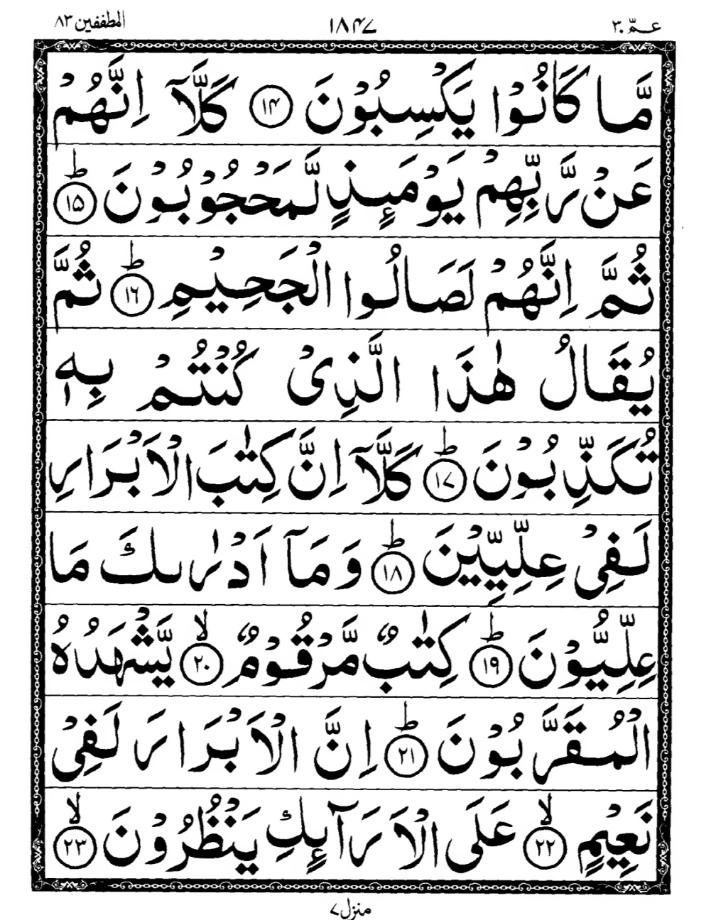 عـمّ ۳۰ ۱۸۴۷ المطففين ۸۳
مَّا كَانُوْا يَكْسِبُوْنَ ۱۴ كَلَّاۤ اِنَّهُمْ
عَنْ رَّبِّهِمْ يَوْمَئِذٍ لَّمَحْجُوْبُوْنَ ؕ ۱۵
ثُمَّ اِنَّهُمْ لَصَالُوا الْجَحِيْمِ ؕ ۱۶ ثُمَّ
يُقَالُ هٰذَا الَّذِىْ كُنْتُمْ بِهٖ
تُكَذِّبُوْنَ ؕ ۱۷ كَلَّاۤ اِنَّ كِتٰبَ الْاَبْرَارِ
لَفِىْ عِلِّيِّيْنَ ؕ ۱۸ وَمَاۤ اَدْرٰىكَ مَا
عِلِّيُّوْنَ ؕ ۱۹ كِتٰبٌ مَّرْقُوْمٌ ۙ ۲۰ يَّشْهَدُهُ
الْمُقَرَّبُوْنَ ؕ ۲۱ اِنَّ الْاَبْرَارَ لَفِىْ
نَعِيْمٍ ۙ ۲۲ عَلَى الْاَرَآئِكِ يَنْظُرُوْنَ ۙ ۲۳
منزل ۷